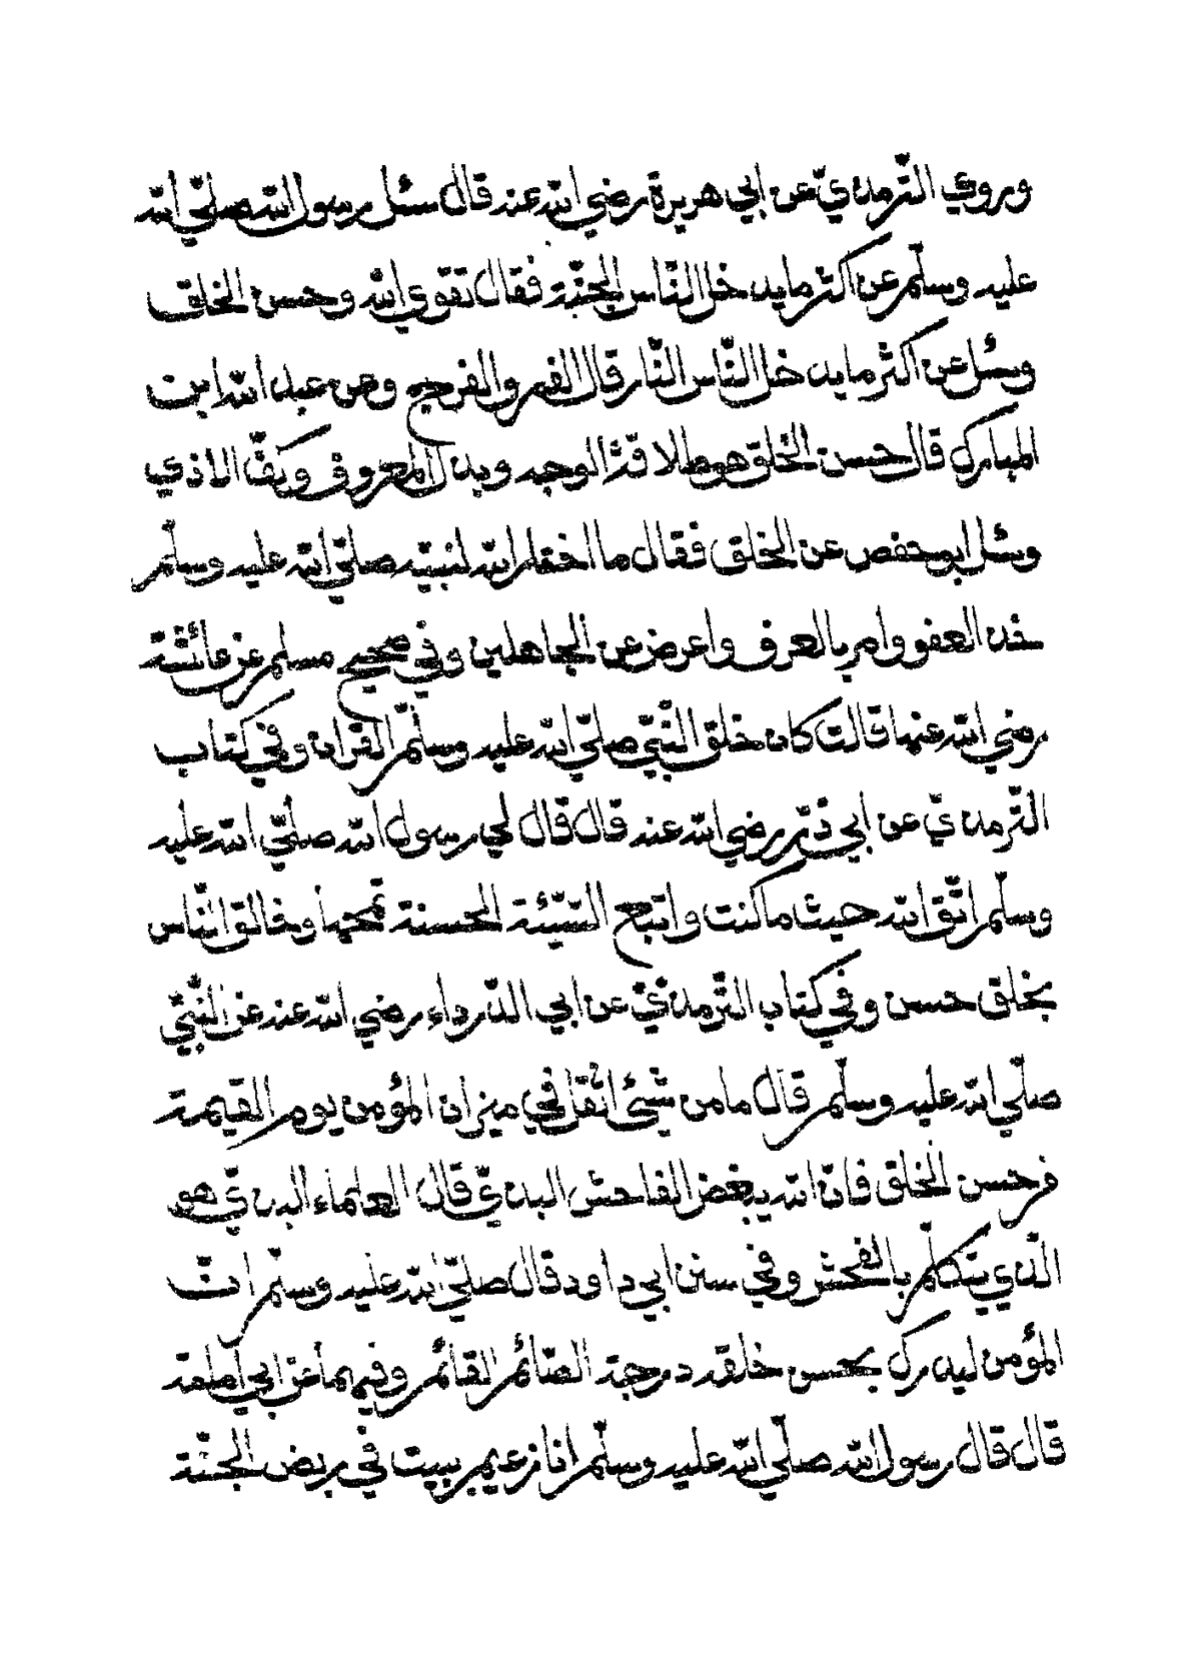 وروي الترمذيّ عن ابي هريرة رضي الله عنه قال سئل رسول الله صلّي الله
عليه وسلّم عن اكثر ما يدخل النّاس الجنّة فقال تقوي الله وحسن الخلق
وسئل عن اكثر ما يدخل النّاس النّار قال الفم والفرج وعن عبد الله ابن
المبارك قال حسن الخلق هو طلاقة الوجه وبذل المعروف وكفّ الاذي
وسئل ابو حفص عن الخلق فقال ما اختار الله لنبيّه صلّي الله عليه وسلّم
خذ العفو وامر بالعرف واعرض عن الجاهلين وفي صحيح مسلم عن عائشة
رضي الله عنها قالت كان خلق النّبيّ صلّي الله عليه وسلّم القران وفي كتاب
التّرمذيّ عن ابي ذرّ رضي الله عنه قال قال لي رسول الله صلّي الله عليه
وسلّم اتّق الله حيث ما كنت واتبع السّيّئة الحسنة تمحها وخالق النّاس
بخلق حسن وفي كتاب التّرمذيّ عن ابي الدّرداء رضي الله عنه عن النّبيّ
صلّي الله عليه وسلّم قال ما من شيئ اثقل في ميزان المؤمن يوم القيمة
من حسن الخلق فانّ الله يبغض الفاحش البذيّ قال العلماء البذيّ هو
الّذي يتكلّم بالفحش وفي سنن ابي داود قال صلّي الله عليه وسلّم انّ
المؤمن ليدرك بحسن خلقه درجة الصّائم القائم وفيهما عن ابي امامة
قال قال رسول الله صلّي الله عليه وسلّم انا زعيم ببيت في ربض الجنّة